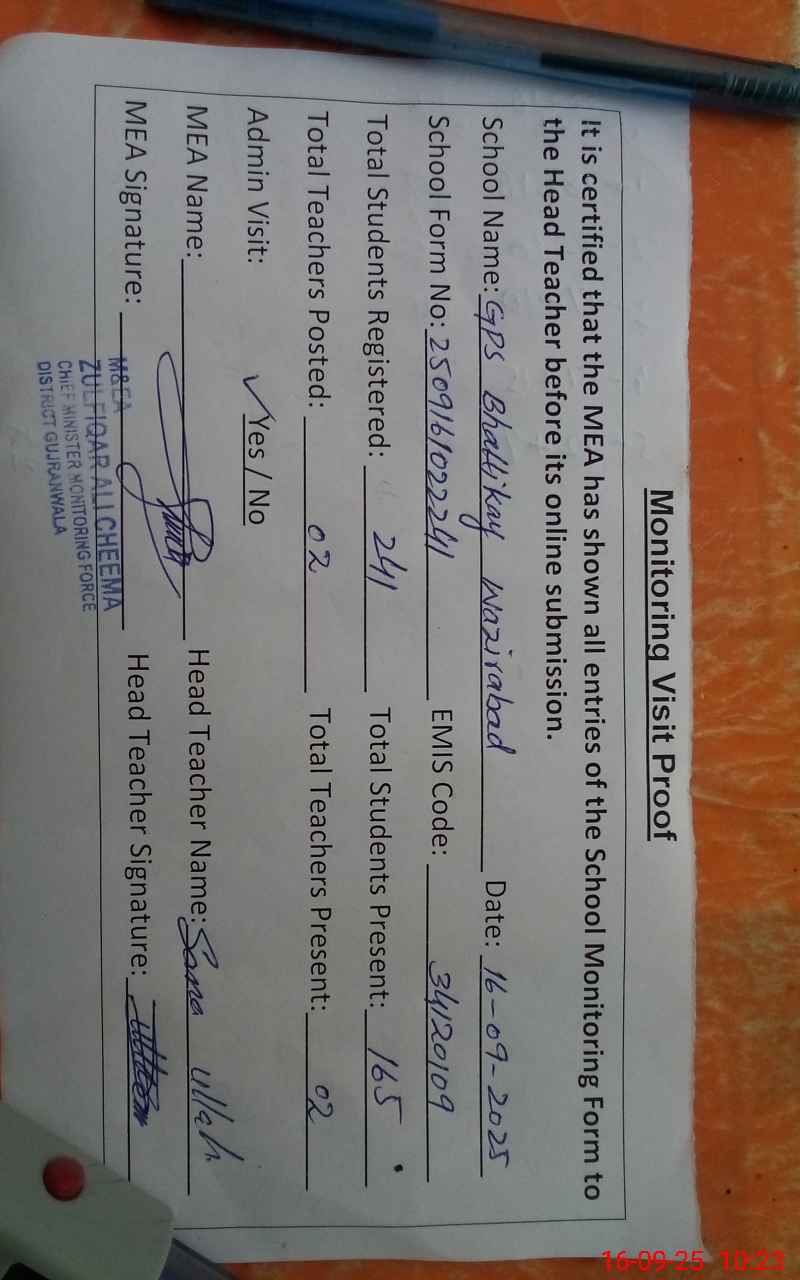 Monitoring Visit Proof
It is certified that the MEA has shown all entries of the School Monitoring Form to
the Head Teacher before its online submission.
School Name: GPS Bhattikay Wazirabad Date: 16-09-2025
School Form No: 250916102241 EMIS Code: 34120109
Total Students Registered: 241 Total Students Present: 165
Total Teachers Posted: 02 Total Teachers Present: 02
Admin Visit: ✓Yes / No
MEA Name: Head Teacher Name: Sana ullah
MEA Signature: Head Teacher Signature:
M&EA
ZULFIQAR ALI CHEEMA
CHIEF MINISTER MONITORING FORCE
DISTRICT GUJRANWALA
16-09-25 10:23